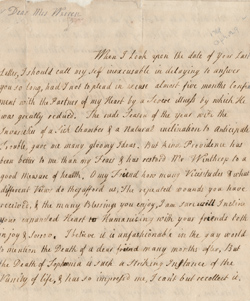 Dear Mrs Warren
When I Look upon the date of Your Last
Letter, I should call my self inexcusable in delaying to answer
you so long, had I not to plead in excuse almost five months confine
ment with the Partner of my Heart by a Severe illness by which He
was greatly reduced. The sad Season of the year with the
Anxieties of a Sick Chamber & a Natural inclination to Anticipate
Trouble, gave me many gloomy Ideas. But kind Providence has
been better to me than my Fears & has restored Mr Winthrop to a
good measure of health. O my Friend how many Vicissitudes & what
different Views do they afford us, The repeated wounds you have
received, & the many Blessings you enjoy, I am sure will
your expanded Heart to Harmonizing with your friends both
in joy & sorrow. I believe it is unfashionable in the gay world
to mention the Death of a dear friend many months after, But
the Death of Sophronia is such a Striking Instance of the
Vanity of life, & has so impressed me, I can't but recollect it,